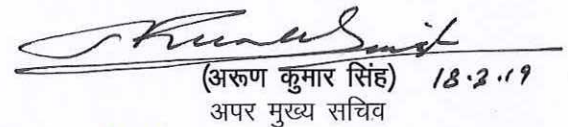 (अरूण कुमार सिंह) 18.2.19
अपर मुख्य सचिव